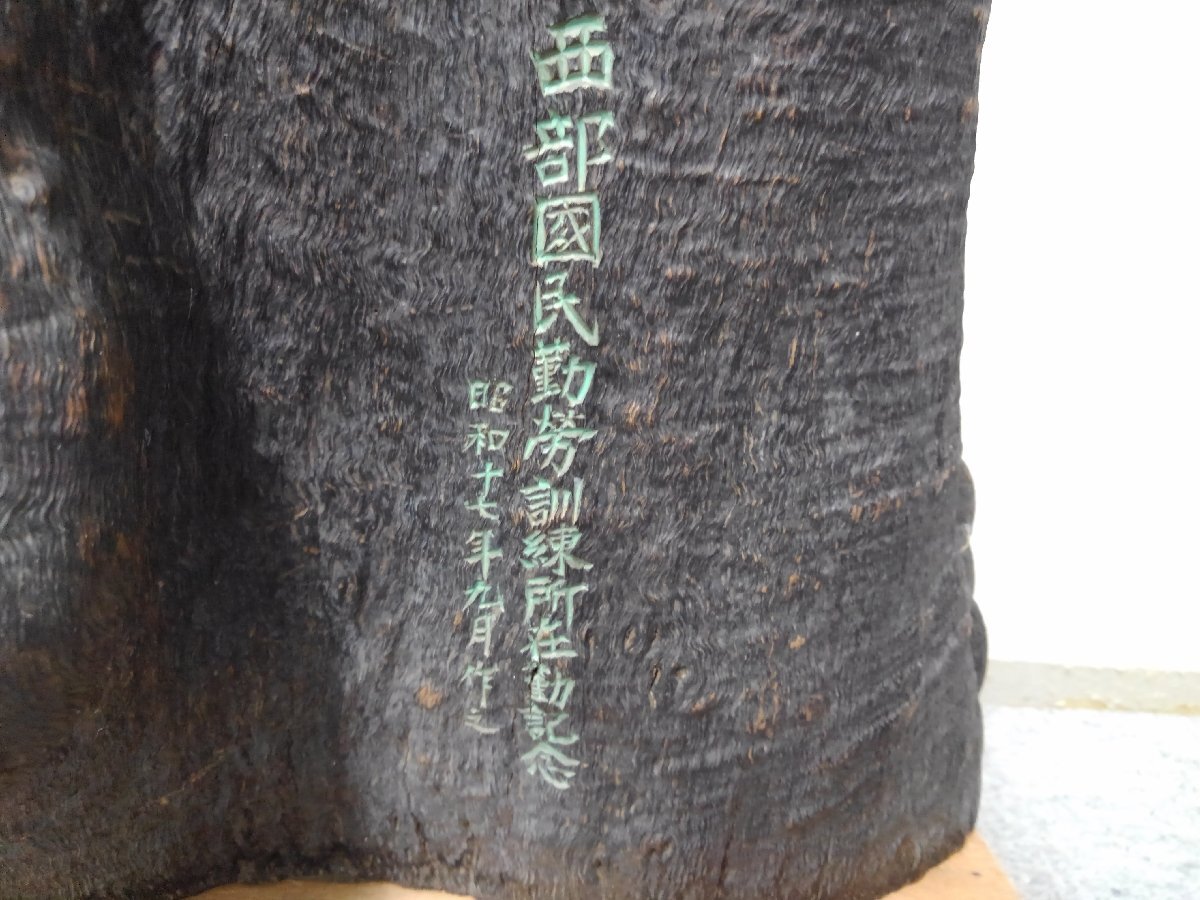 西部國民勤勞訓練所在勤記念
昭和十七年九月作之